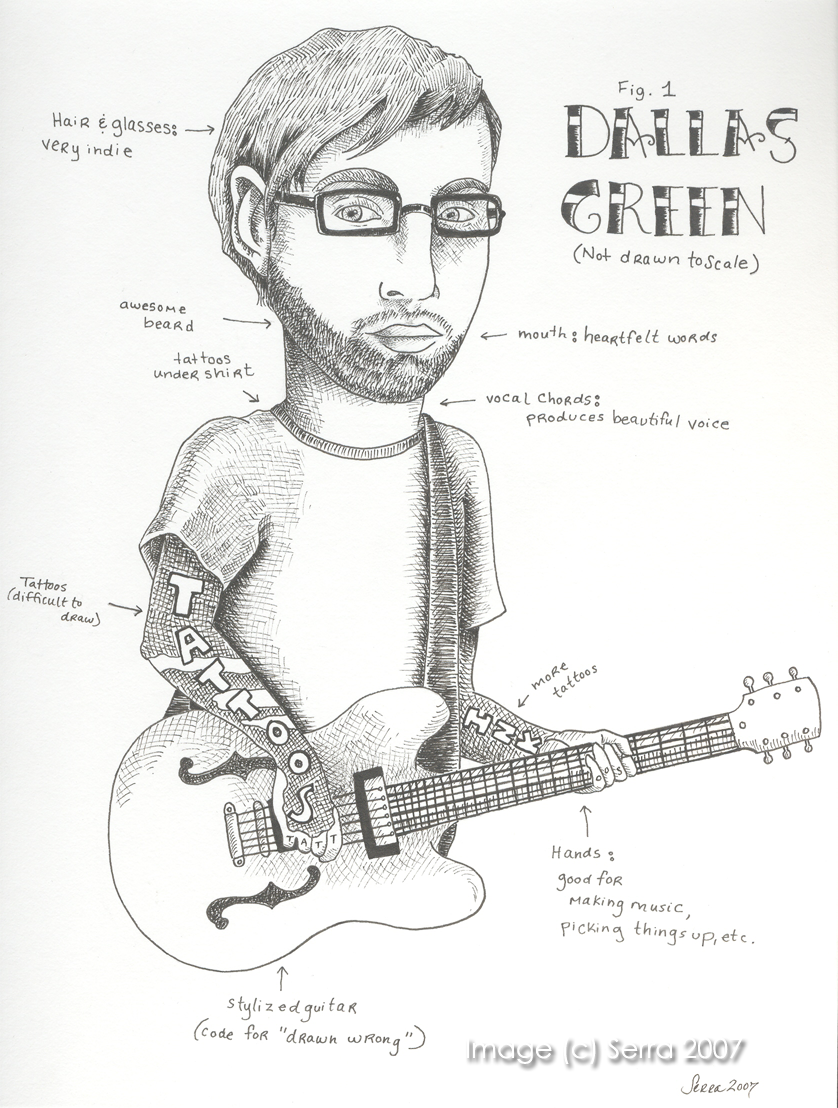 Fig. 1
DALLAS
GREEN
(Not drawn to scale)
Hair & glasses:
very indie
awesome
beard
tattoos
under shirt
mouth: heartfelt words
vocal chords:
produces beautiful voice
Tattoos
(difficult to
draw)
TATTOOS
more
tattoos
TATT
Hands:
good for
making music,
picking things up, etc.
stylized guitar
(code for "drawn wrong")
Image (c) Serra 2007
Serra 2007